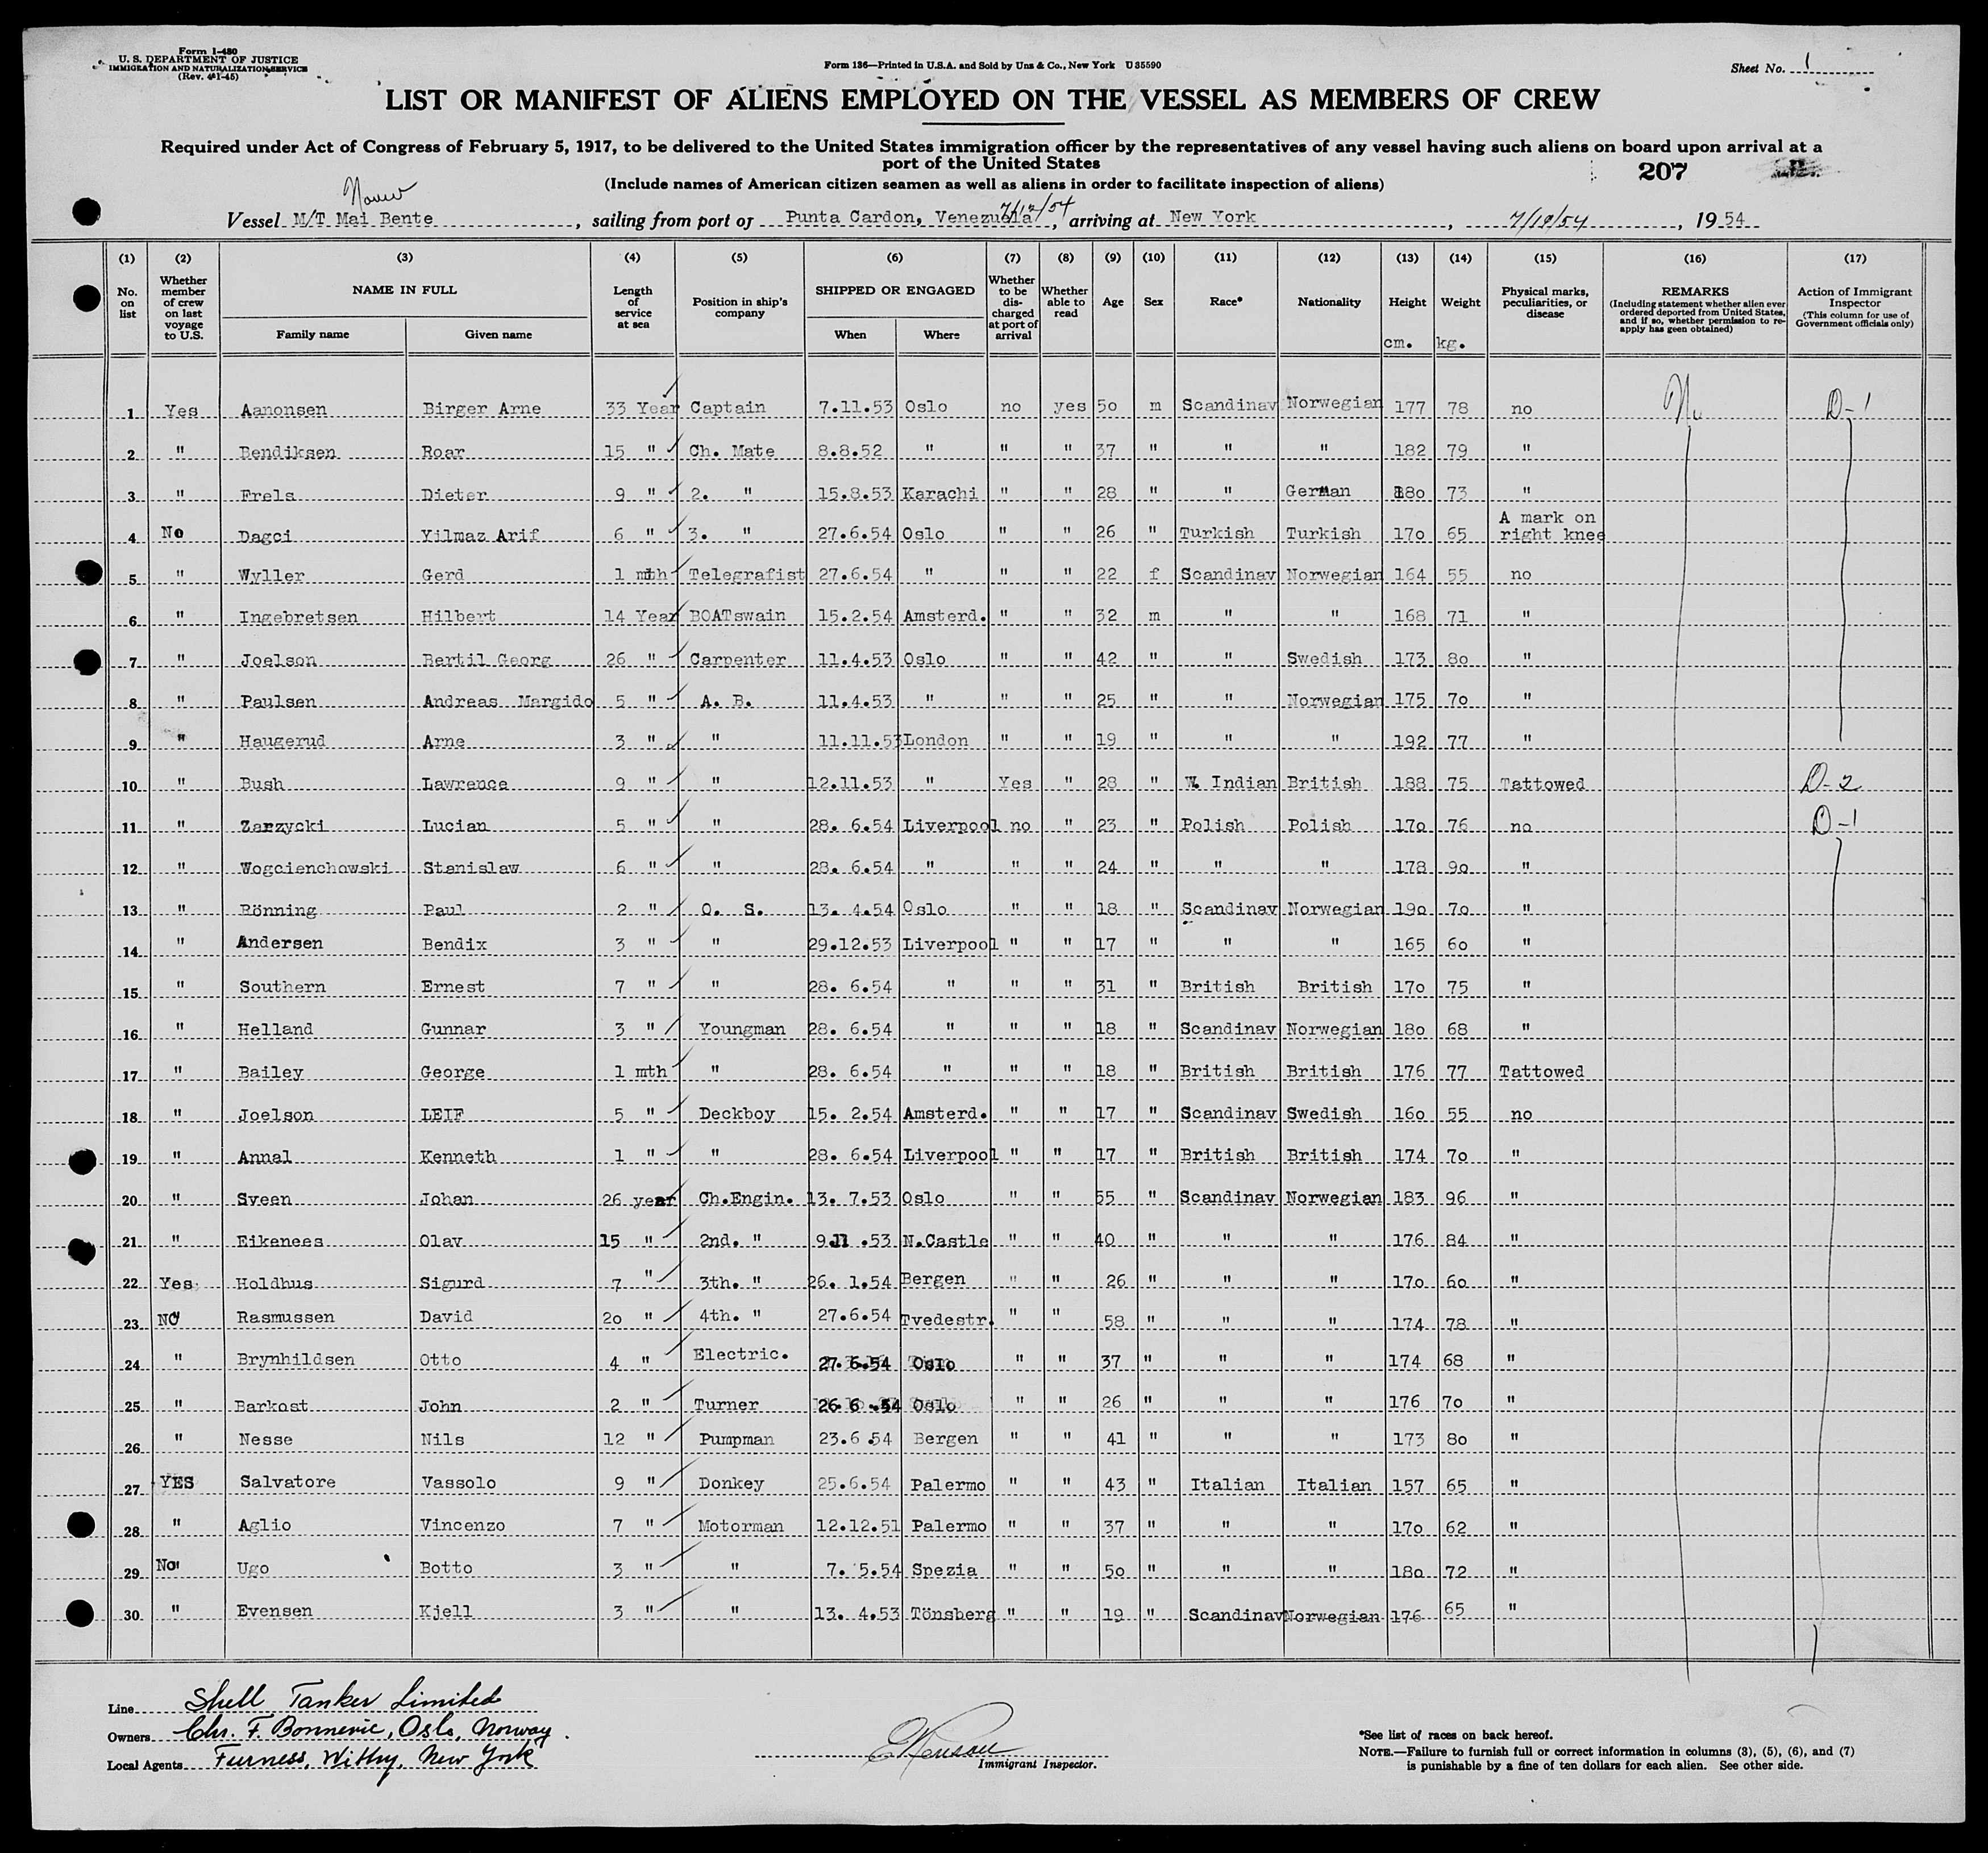 Form I-480
U. S. DEPARTMENT OF JUSTICE
IMMIGRATION AND NATURALIZATION SERVICE
(Rev. 4-1-45)
Form 136—Printed in U.S.A. and Sold by Unz & Co., New York U 35590
Sheet No. 1
LIST OR MANIFEST OF ALIENS EMPLOYED ON THE VESSEL AS MEMBERS OF CREW
Required under Act of Congress of February 5, 1917, to be delivered to the United States immigration officer by the representatives of any vessel having such aliens on board upon arrival at a
port of the United States
(Include names of American citizen seamen as well as aliens in order to facilitate inspection of aliens)
207
Vessel M/T Mai Bente, sailing from port of Punta Cardon, Venezuela 7/12/54, arriving at New York, 7/19/54, 1954
(1) (2) (3) (4) (5) (6) (7) (8) (9) (10) (11) (12) (13) (14) (15) (16) (17)
No. on list
Whether member of crew on last voyage to U.S.
NAME IN FULL
Family name Given name
Length of service at sea
Position in ship's company
SHIPPED OR ENGAGED
When Where
Whether to be discharged at port of arrival
Whether able to read
Age
Sex
Race*
Nationality
Height cm.
Weight kg.
Physical marks, peculiarities, or disease
REMARKS
(Including statement whether alien ever ordered deported from United States, and if so, whether permission to re-apply has been obtained)
Action of Immigrant Inspector
(This column for use of Government officials only)
1 Yes Aanonsen Birger Arne 33 Year Captain 7.11.53 Oslo no yes 50 m Scandinav Norwegian 177 78 no No D-1
2 " Bendiksen Roar 15 " Ch. Mate 8.8.52 " " " 37 " " " 182 79 "
3 " Frels Dieter 9 " 2. " 15.8.53 Karachi " " 28 " " German 180 73 "
4 No Dagci Yilmaz Arif 6 " 3. " 27.6.54 Oslo " " 26 " Turkish Turkish 170 65 A mark on right knee
5 " Wyller Gerd 1 mth Telegrafist 27.6.54 " " " 22 f Scandinav Norwegian 164 55 no
6 " Ingebretsen Hilbert 14 Year BOATswain 15.2.54 Amsterd. " " 32 m " " 168 71 "
7 " Joelson Bertil Georg 26 " Carpenter 11.4.53 Oslo " " 42 " " Swedish 173 80 "
8 " Paulsen Andreas Margido 5 " A. B. 11.4.53 " " " 25 " " Norwegian 175 70 "
9 " Haugerud Arne 3 " " 11.11.53 London " " 19 " " " 192 77 "
10 " Bush Lawrence 9 " " 12.11.53 " Yes " 28 " W. Indian British 188 75 Tattowed D-2
11 " Zarzycki Lucian 5 " " 28. 6.54 Liverpool no " 23 " Polish Polish 170 76 no D-1
12 " Wogcienchowski Stanislaw 6 " " 28. 6.54 " " " 24 " " " 178 90 "
13 " Rönning Paul 2 " O. S. 13. 4.54 Oslo " " 18 " Scandinav Norwegian 190 70 "
14 " Andersen Bendix 3 " " 29.12.53 Liverpool " " 17 " " " 165 60 "
15 " Southern Ernest 7 " " 28. 6.54 " " " 31 " British British 170 75 "
16 " Helland Gunnar 3 " Youngman 28. 6.54 " " " 18 " Scandinav Norwegian 180 68 "
17 " Bailey George 1 mth " 28. 6.54 " " " 18 " British British 176 77 Tattowed
18 " Joelson LEIF 5 " Deckboy 15. 2.54 Amsterd. " " 17 " Scandinav Swedish 160 55 no
19 " Annal Kenneth 1 " " 28. 6.54 Liverpool " " 17 " British British 174 70 "
20 " Sveen Johan 26 year Ch.Engin. 13. 7.53 Oslo " " 55 " Scandinav Norwegian 183 96 "
21 " Eikenees Olav 15 " 2nd. " 9.11 .53 N.Castle " " 40 " " " 176 84 "
22 Yes Holdhus Sigurd 7 " 3th. " 26. 1.54 Bergen " " 26 " " " 170 60 "
23 NO Rasmussen David 20 " 4th. " 27.6.54 Tvedestr. " " 58 " " " 174 78 "
24 " Brynhildsen Otto 4 " Electric. 27.6.54 Oslo " " 37 " " " 174 68 "
25 " Barkost John 2 " Turner 26.6.54 Oslo " " 26 " " " 176 70 "
26 " Nesse Nils 12 " Pumpman 23.6.54 Bergen " " 41 " " " 173 80 "
27 YES Salvatore Vassolo 9 " Donkey 25.6.54 Palermo " " 43 " Italian Italian 157 65 "
28 " Aglio Vincenzo 7 " Motorman 12.12.51 Palermo " " 37 " " " 170 62 "
29 No Ugo Botto 3 " " 7. 5.54 Spezia " " 50 " " " 180 72 "
30 " Evensen Kjell 3 " " 13. 4.53 Tönsberg " " 19 " Scandinav Norwegian 176 65 "
Line Shell Tanker Limited
Owners Chr. F. Bonnevie, Oslo, Norway.
Local Agents Furness, Withy, New York
Immigrant Inspector.
*See list of races on back hereof.
NOTE.—Failure to furnish full or correct information in columns (3), (5), (6), and (7)
is punishable by a fine of ten dollars for each alien. See other side.